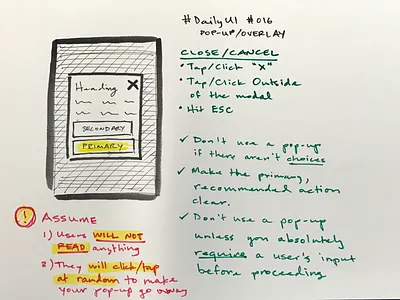 #DailyUI #016
POP-UP/OVERLAY
CLOSE/CANCEL
• Tap/Click "X"
• Tap/Click Outside
of the modal
• Hit ESC
Heading
X
SECONDARY
PRIMARY
✓ Don't use a pop-up
if there aren't choices
✓ Make the primary,
recommended action
clear.
✓ Don't use a pop-up
unless you absolutely
require a user's input
before proceeding
! ASSUME
1) Users WILL NOT
READ anything
2) They will click/tap
at random to make
your pop-up go away